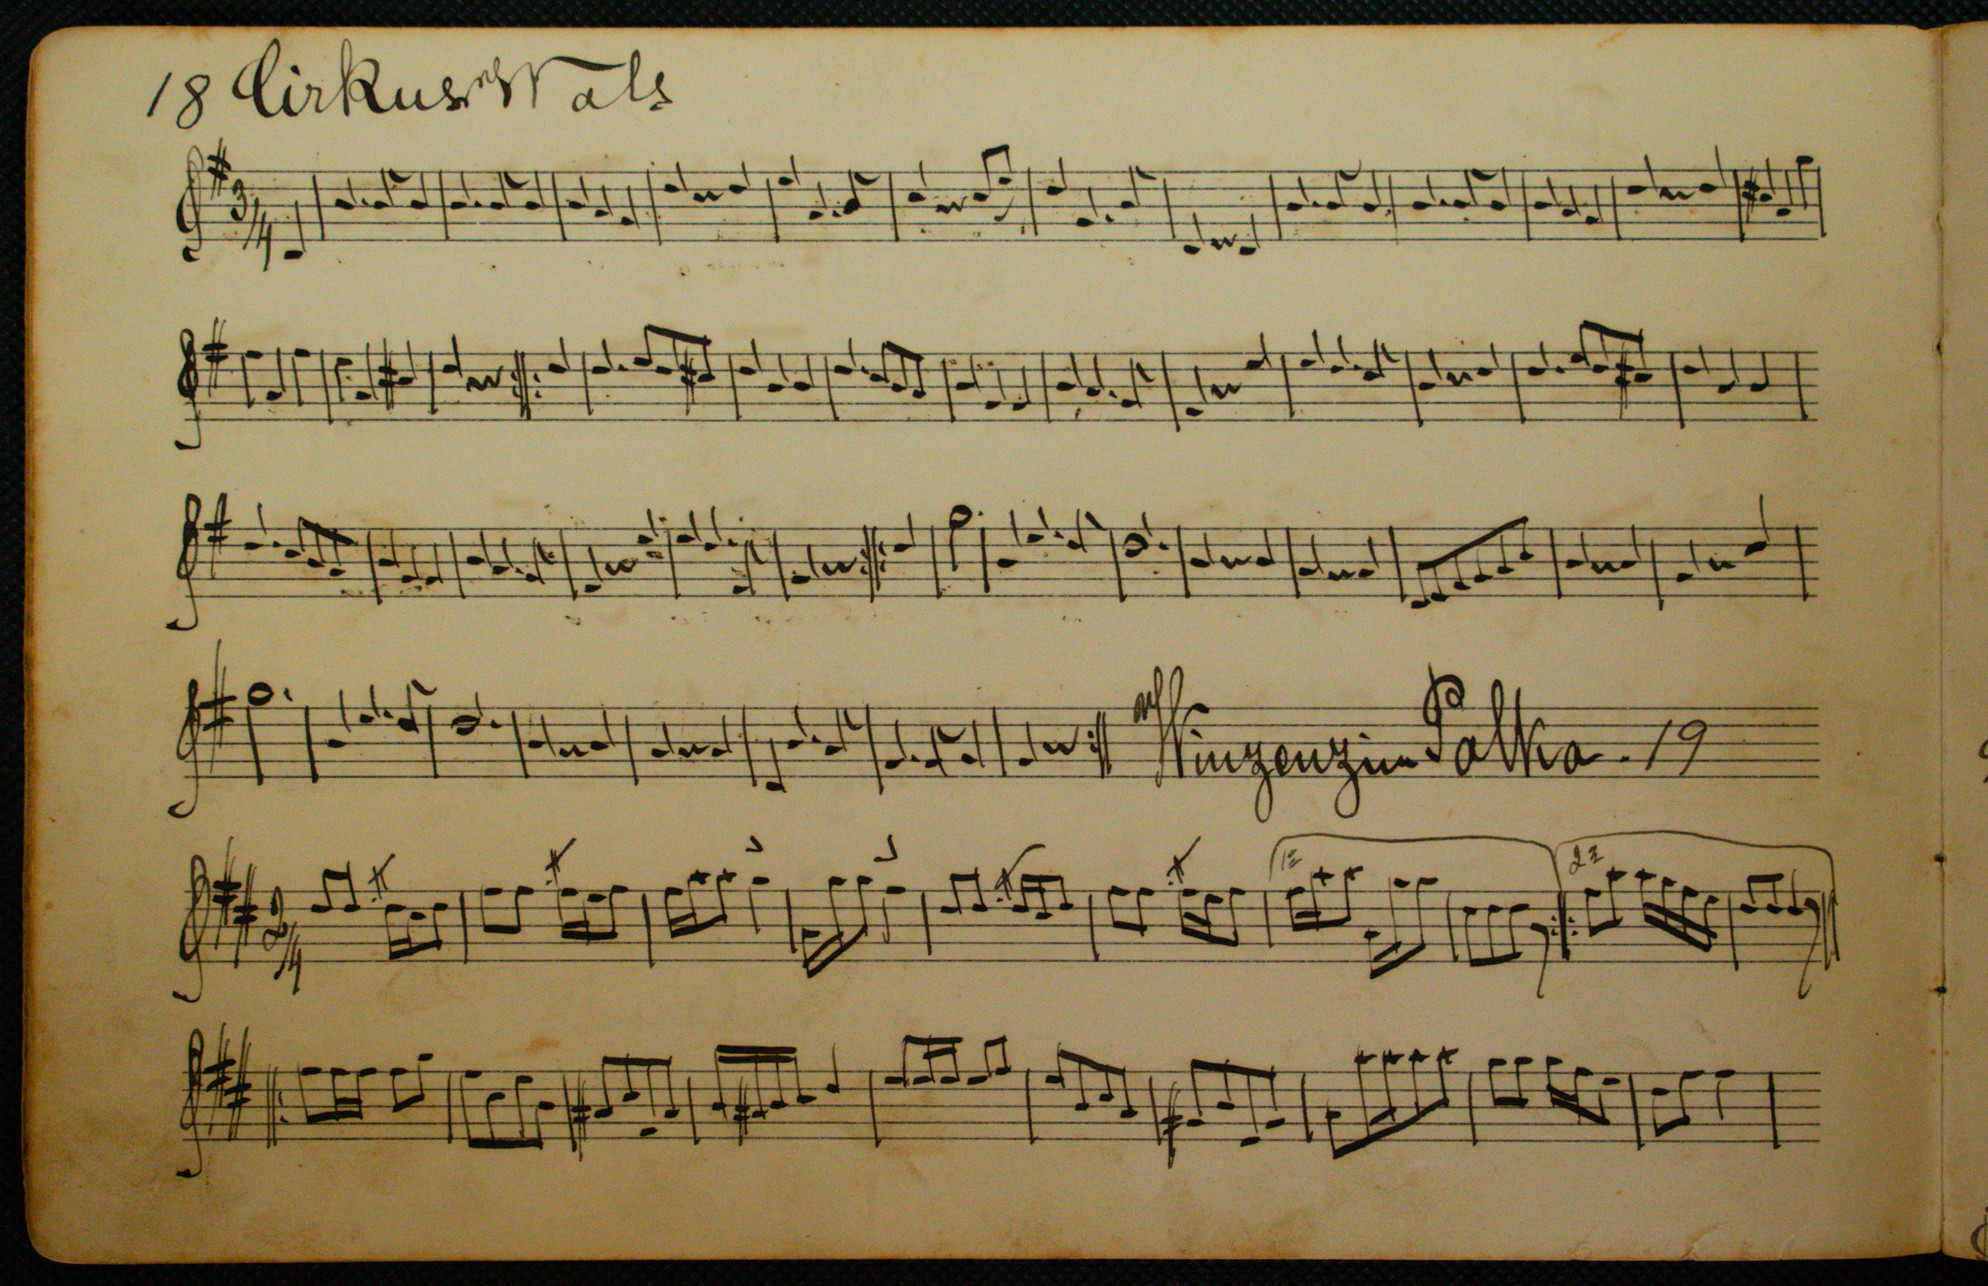 18 Cirkus Wals
3/4
Winzenzius Polka. 19
2/4
1= 2=